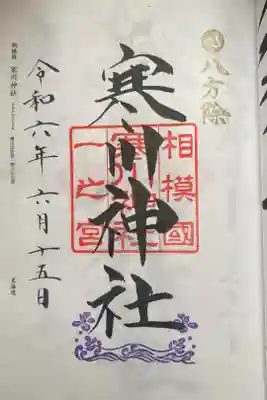 八方除
寒川神社
相模國
寒川神社
一之宮
令和六年六月十五日
寒川神社